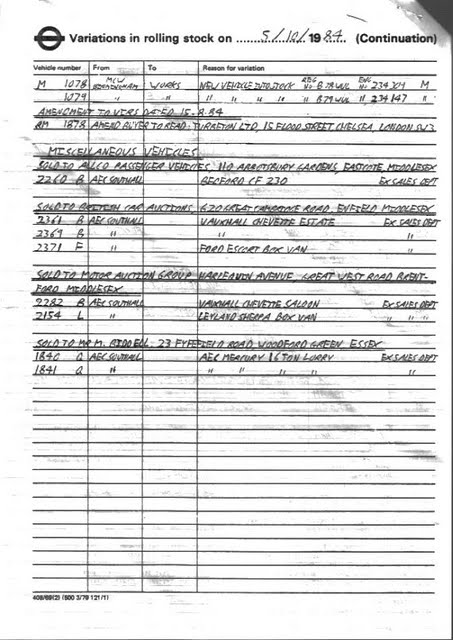 Variations in rolling stock on 5/10/1984 (Continuation)
Vehicle number From To Reason for variation
M 1078 MCW BIRMINGHAM WORKS NEW VEHICLE INTO STOCK REG No B78WUL ENG No 234304 M
1079 " " " " " " " B79WUL " 234147 "
AMENDMENT TO VIRS DATED 15.8.84
RM 1878 AMEND BUYER TO READ: TURAFTON LTD, 15 FLOOD STREET CHELSEA, LONDON SW3
MISCELLANEOUS VEHICLES
SOLD TO ALLCO PASSENGER VEHICLES, 110 ABBOTSBURY GARDENS, EASTCOTE, MIDDLESEX
2260 B AEC SOUTHALL BEDFORD CF 230 EX SALES DEPT
SOLD TO BRITISH CAR AUCTIONS, 620 GREAT CAMBRIDGE ROAD, ENFIELD MIDDLESEX
2361 B AEC SOUTHALL VAUXHALL CHEVETTE ESTATE EX SALES DEPT
2369 B " " " " "
2371 F " FORD ESCORT BOX VAN
SOLD TO MOTOR AUCTION GROUP HARLEQUIN AVENUE, GREAT WEST ROAD BRENT-
FORD MIDDLESEX
2282 B AEC SOUTHALL VAUXHALL CHEVETTE SALOON EX SALES DEPT
2154 L " LEYLAND SHERPA BOX VAN " " "
SOLD TO MR M. RIDDELL: 23 FYFIELD ROAD WOODFORD GREEN, ESSEX
1840 Q AEC SOUTHALL AEC MERCURY 16 TON LORRY EX SALES DEPT
1841 Q " " " " " "
408/69(2) (500 3/79 121/1)